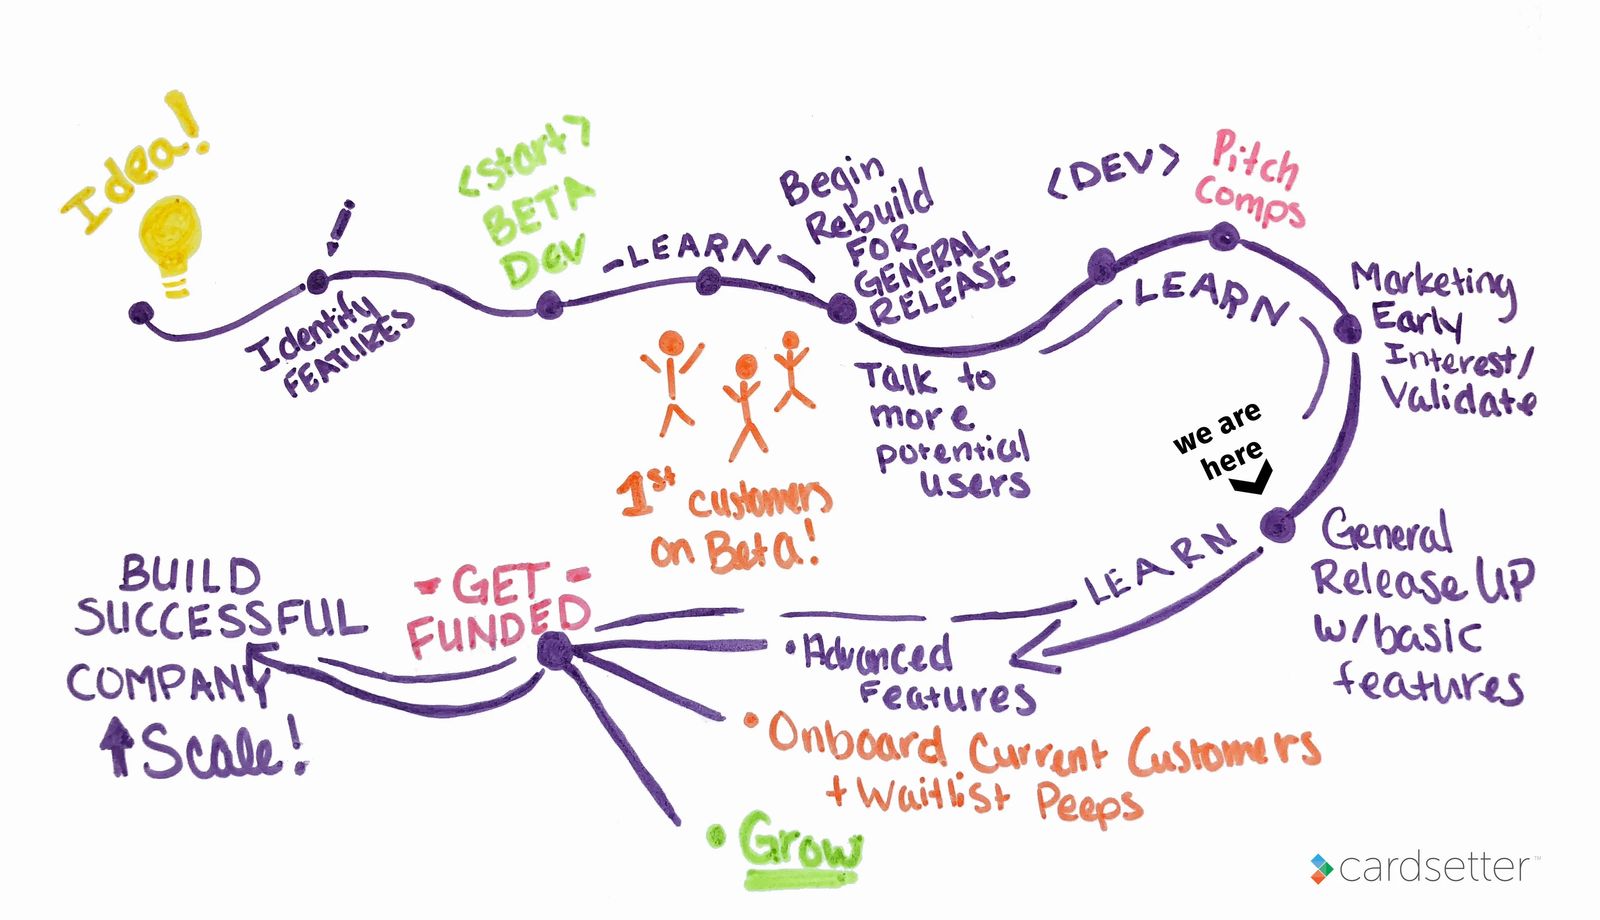 Idea!
Identify
FEATURES
<start>
BETA
DEV
-LEARN-
1st customers
on Beta!
Begin
Rebuild
FOR
GENERAL
RELEASE
Talk to
more
potential
users
<DEV>
Pitch
Comps
LEARN
Marketing
Early
Interest/
Validate
we are
here
General
Release UP
w/basic
features
LEARN
• Advanced
Features
• Onboard Current Customers
+ Waitlist Peeps
• Grow
- GET -
FUNDED
BUILD
SUCCESSFUL
COMPANY
↑ Scale!
cardsetter™